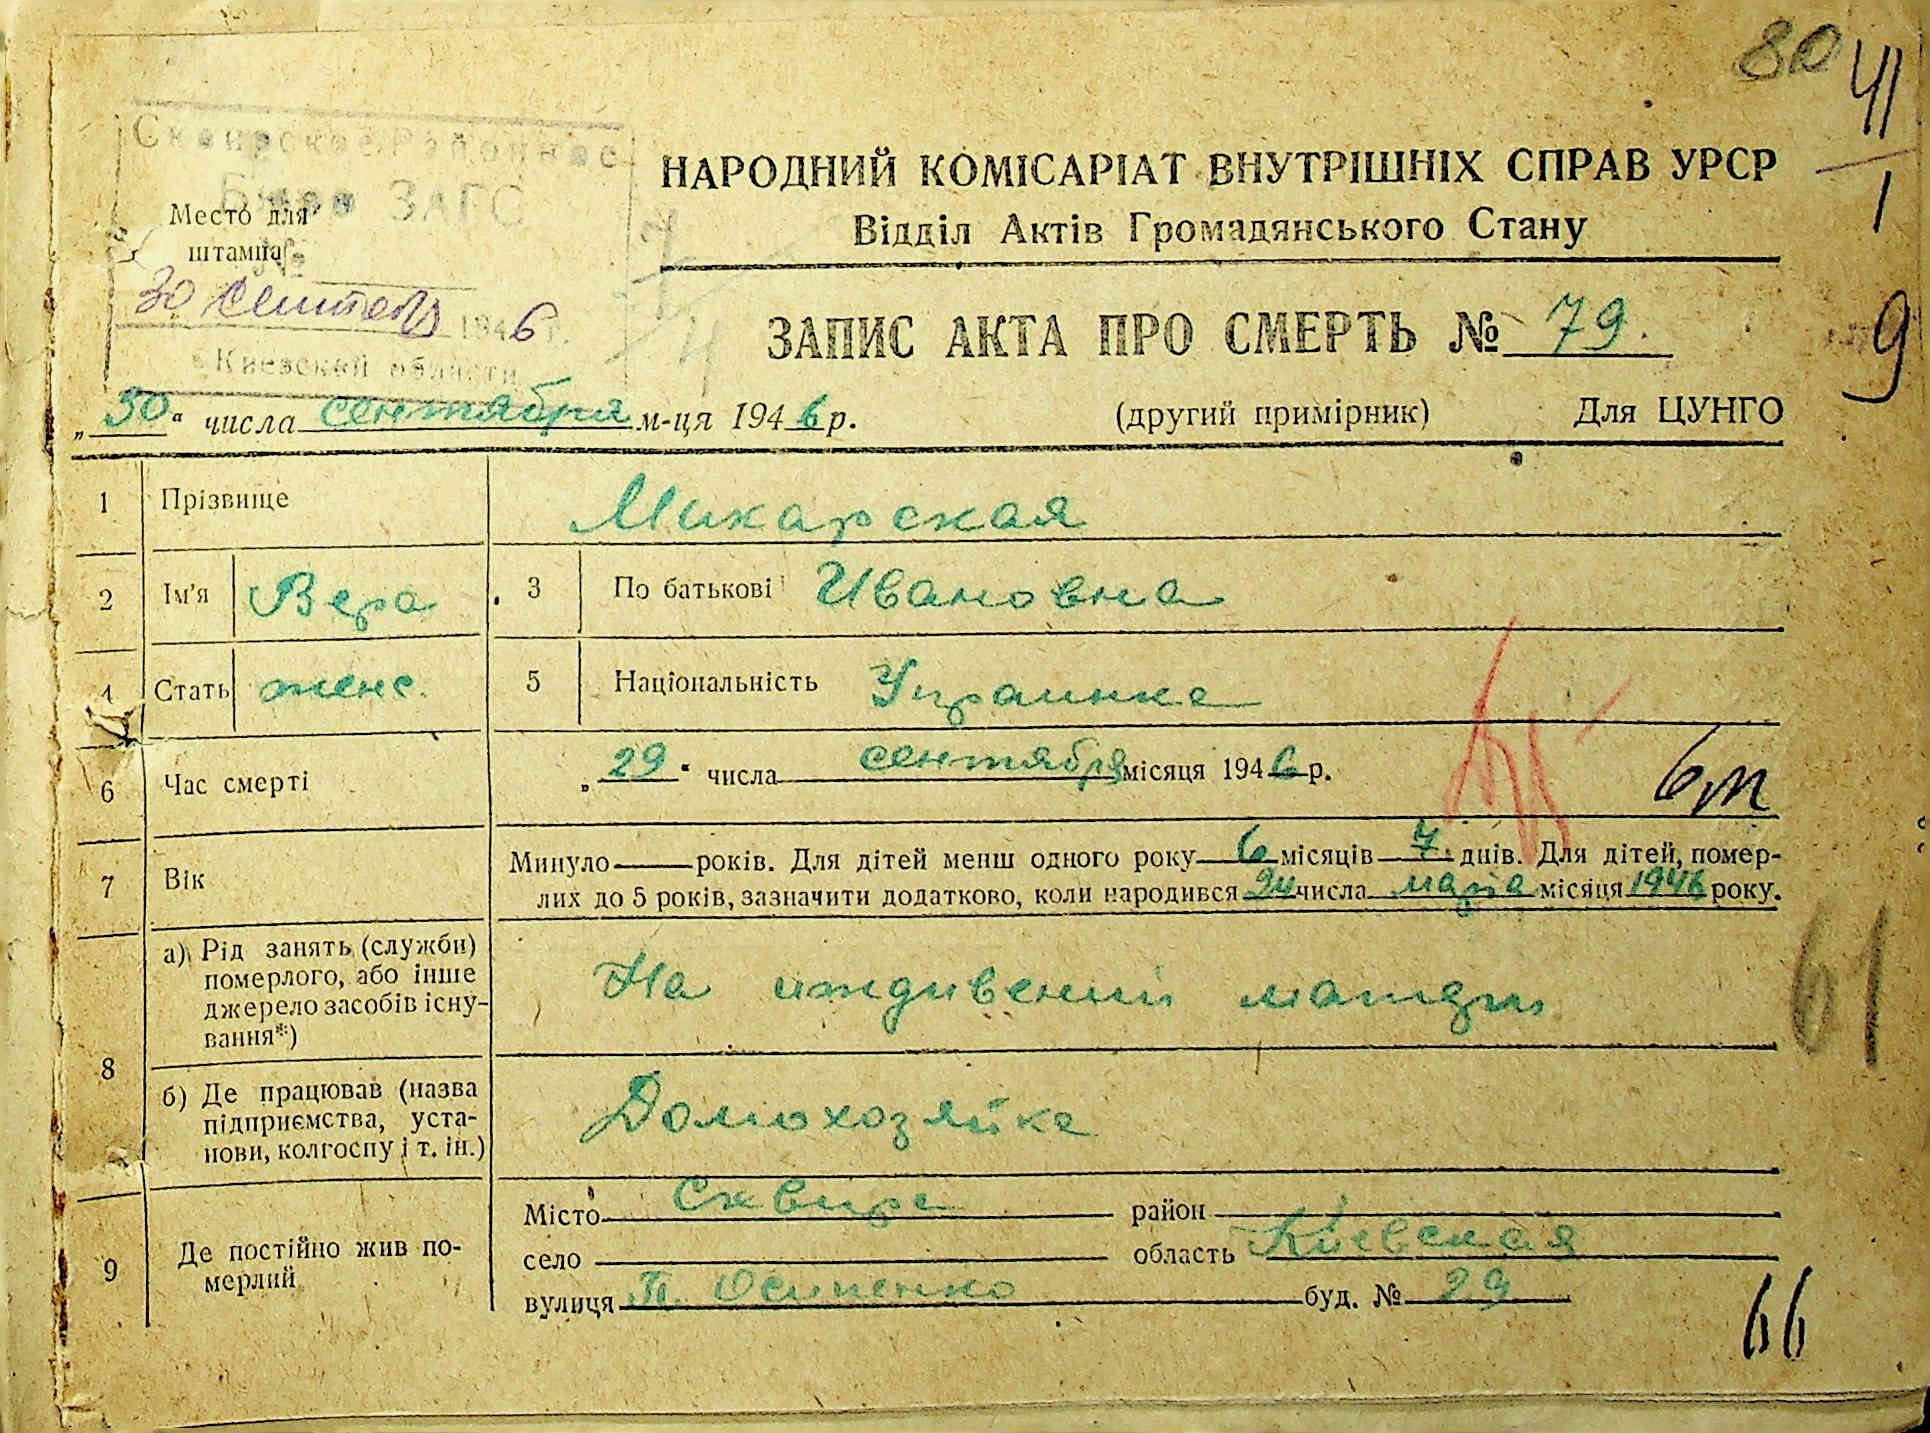 80
41
1
Сквирское Районное
Бюро ЗАГС
НАРОДНИЙ КОМІСАРІАТ ВНУТРІШНІХ СПРАВ УРСР
Место для
штампа
№
Відділ Актів Громадянського Стану
30 сентябр 1946 г.
ЗАПИС АКТА ПРО СМЕРТЬ № 79.
9
Киевской области
„30“ числа сентября м-ця 1946 р. (другий примірник) Для ЦУНГО
1 Прізвище Микарская
2 Ім'я Вера 3 По батькові Ивановна
4 Стать женс. 5 Національність Украинка
6 Час смерті „29“ числа сентября місяця 1946 р.
6м
7 Вік Минуло — років. Для дітей менш одного року 6 місяців 7 днів. Для дітей, помер-
лих до 5 років, зазначити додатково, коли народився 24 числа марта місяця 1946 року.
61
8 а) Рід занять (служби)
померлого, або інше
джерело засобів існу-
вання*)
На иждивении матери
б) Де працював (назва
підприємства, уста-
нови, колгоспу і т. ін.)
Домохозяйка
9 Де постійно жив по-
мерлий
Місто Сквира район
село область Киевская
вулиця П. Осипенко буд. № 29
66